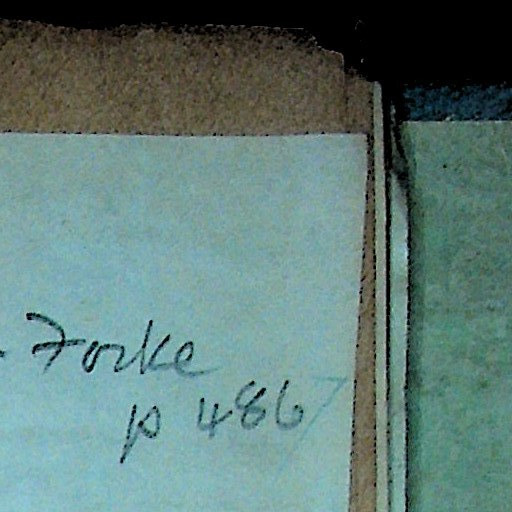 Forke
p 486